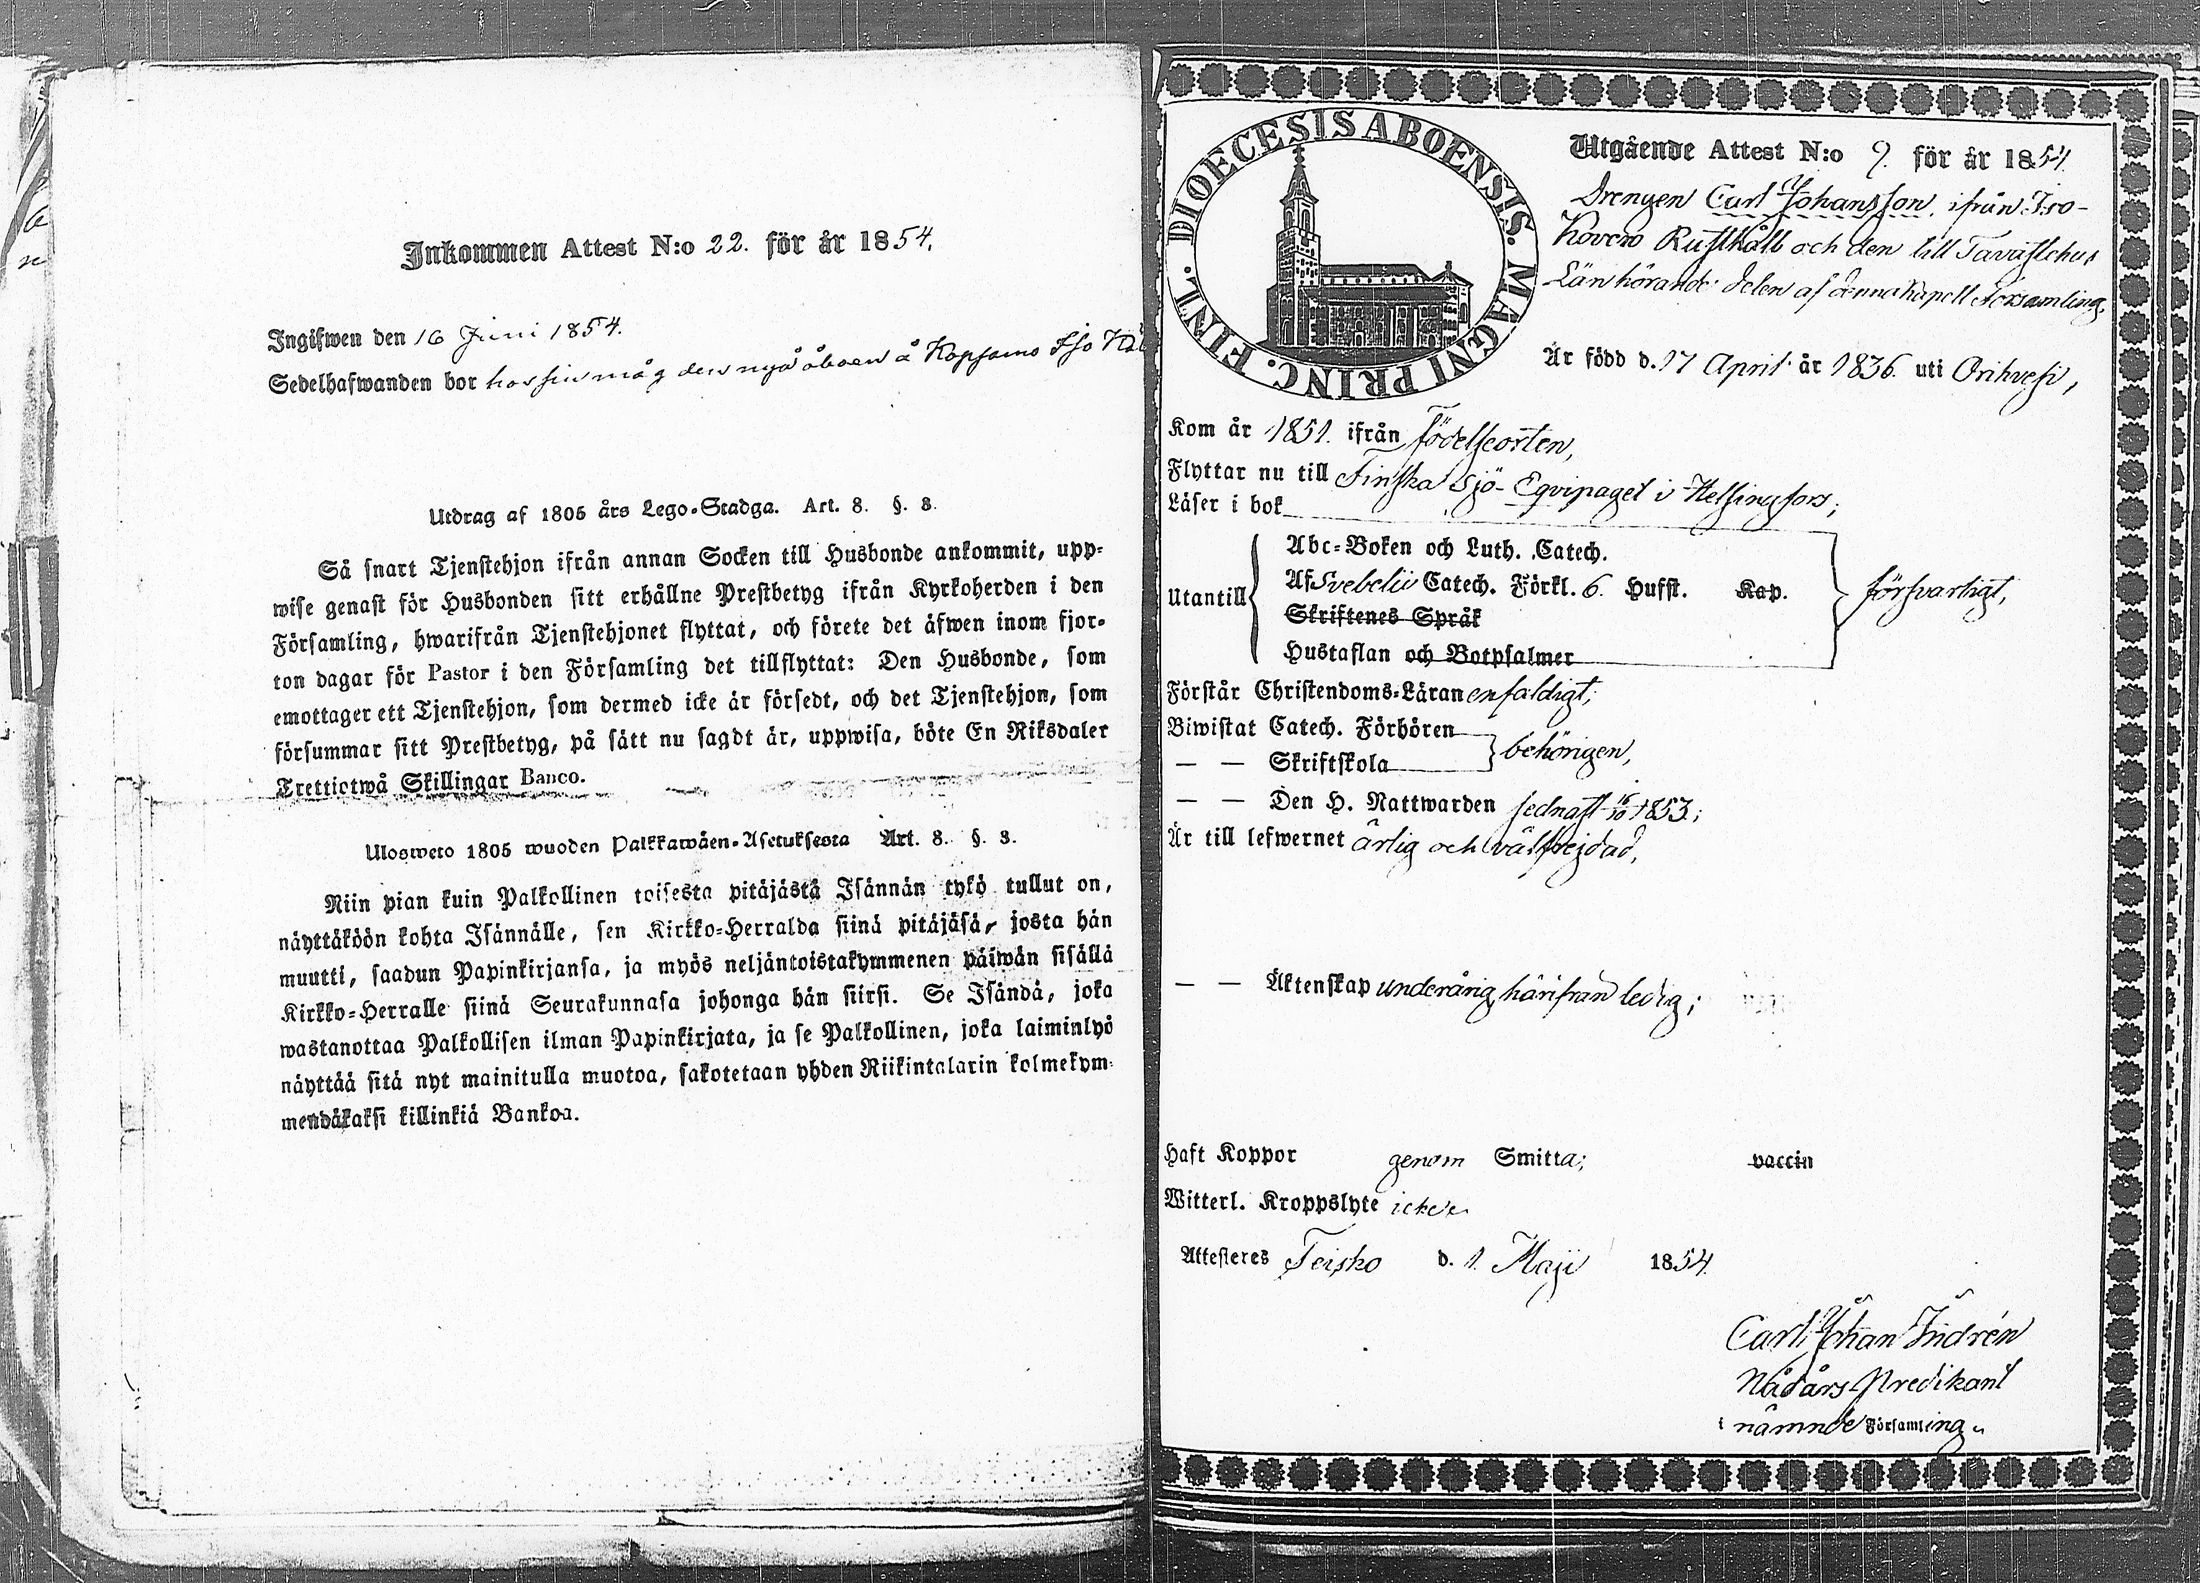 Inkommen Attest N:o 22. för år 1854.
Ingifwen den 16 Juni 1854.
Sedelhafwanden bor hos sin måg den nya åboen å Kopsamo
Utdrag af 1805 års Lego-Stadga. Art. 8. §. 3.
Så snart Tjenstehjon ifrån annan Socken till Husbonde ankommit, upp-
wise genast för Husbonden sitt erhållne Prestbetyg ifrån Kyrkoherden i den
Församling, hwarifrån Tjenstehjonet flyttat, och förete det äfwen inom fjor-
ton dagar för Pastor i den Församling det tillflyttat: Den Husbonde, som
emottager ett Tjenstehjon, som dermed icke är försedt, och det Tjenstehjon, som
försummar sitt Prestbetyg, på sätt nu sagdt är, uppwisa, böte En Riksdaler
Trettiotwå Skillingar Banco.
Ulosweto 1805 wuoden Palkkawäen-Asetuksesta Art. 8. §. 3.
Niin pian kuin Palkollinen toisesta pitäjästä Isännän tykö tullut on,
näyttäköön kohta Isännälle, sen Kirkko-Herralda siinä pitäjäsä, josta hän
muutti, saadun Papinkirjansa, ja myös neljäntoistakymmenen päiwän sisällä
Kirkko-Herralle siinä Seurakunnasa johonga hän siirsi. Se Isändä, joka
wastanottaa Palkollisen ilman Papinkirjata, ja se Palkollinen, joka laiminlyö
näyttää sitä nyt mainitulla muotoa, sakotetaan yhden Riikintalarin kolmekym-
mendäkaksi killinkiä Bankoa.
DIOECESIS ABOENSIS. MAGNI PRINC. FINL.
Utgående Attest N:o 9. för år 1854.
Drengen Carl Johansson, ifrån Iso-
Kovero Rusthåll och den till Tavastehus
Län hörande delen af denna Kapell Församling,
Är född d. 17 April år 1836. uti Orihvesi,
Kom år 1851. ifrån Födelseorten,
Flyttar nu till Finska Sjö-Eqvipaget i Helsingfors;
Läser i bok
Abc-Boken och Luth. Catech.
Utantill Af Svebelii Catech. Förkl. 6. Hufst. Kap. försvarligt,
Skriftenes Språk
Hustaflan och Botpsalmer
Förstår Christendoms-Läran enfaldigt;
Biwistat Catech. Förhören
— — Skriftskola behörigen,
— — Den H. Nattwarden sednast 1853;
Är till lefwernet ärlig och välfrejdad,
— — Äktenskap underårig härifrån ledig;
Haft Koppor genom Smitta; vaccin
Witterl. Kroppslyte icke
Attesteres Teisko d. 1 Maji 1854.
Carl Johan Indrén
Nådårs Predikant
i nämnde Församling.